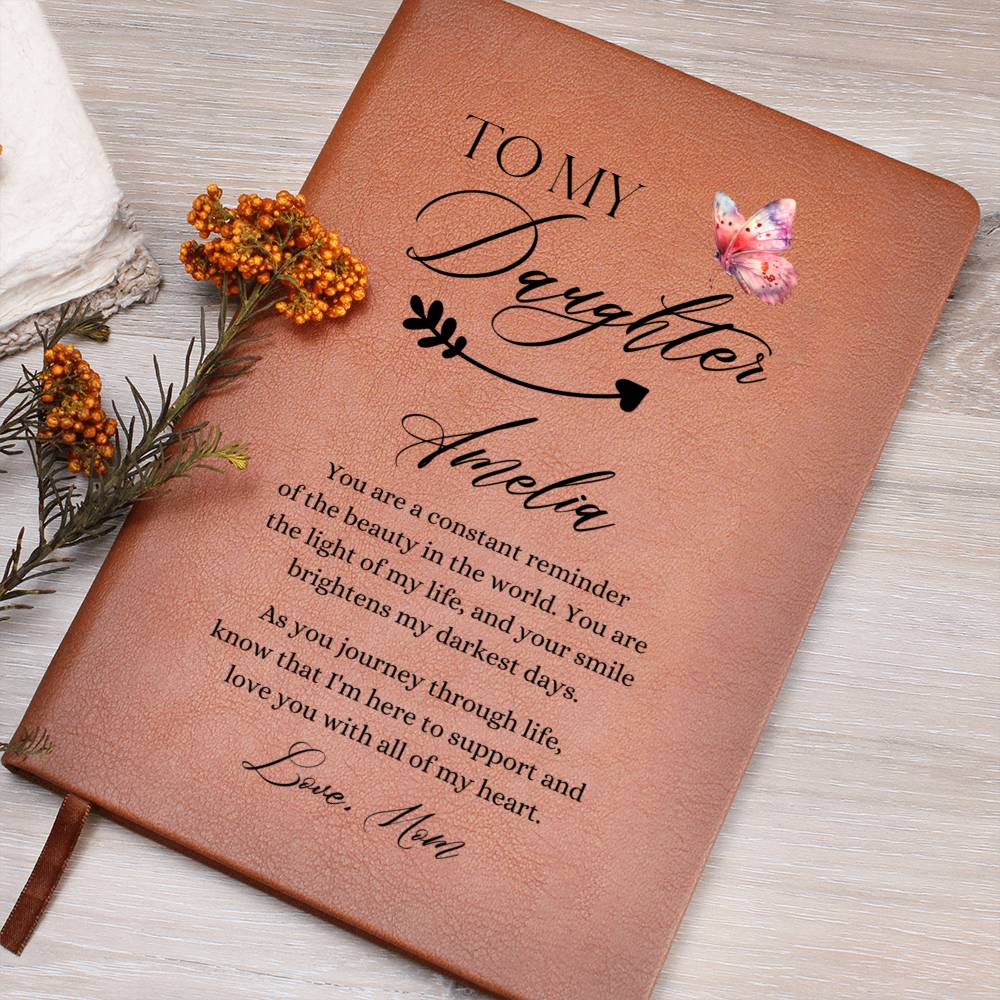 TO MY
Daughter
Amelia
You are a constant reminder
of the beauty in the world. You are
the light of my life, and your smile
brightens my darkest days.
As you journey through life,
know that I'm here to support and
love you with all of my heart.
Love, Mom